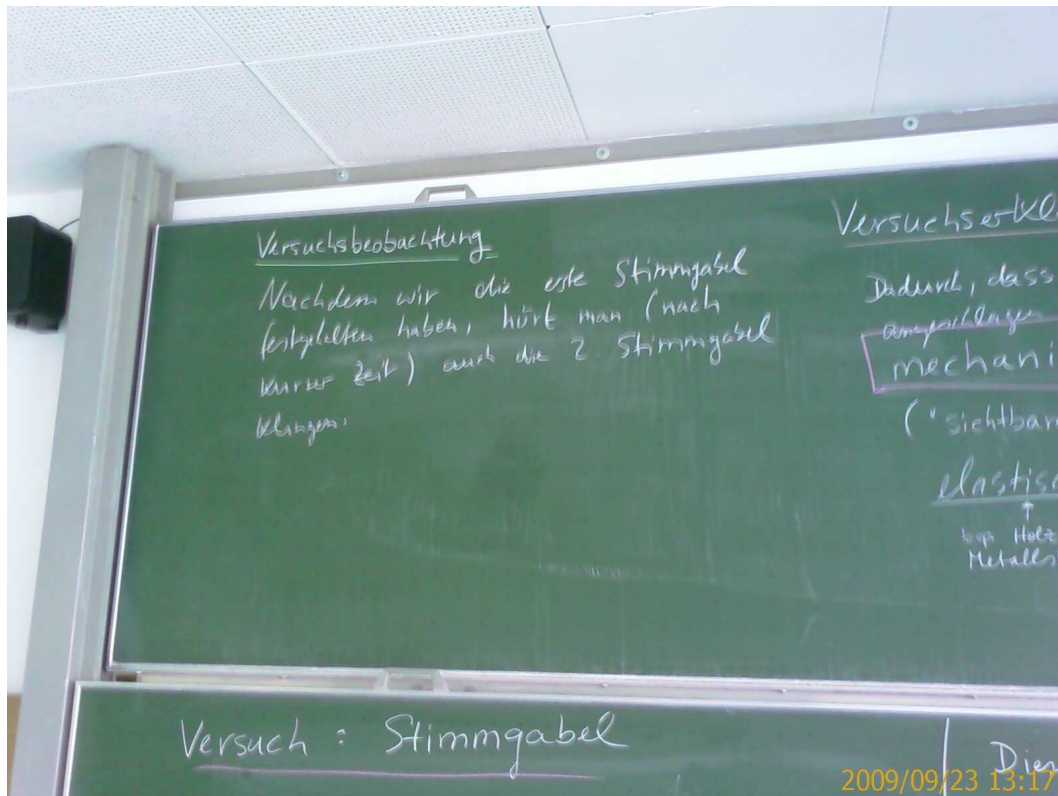 Versuchsbeobachtung
Nachdem wir die erste Stimmgabel
festgehalten haben, hört man (nach
kurzer Zeit) auch die 2. Stimmgabel
klingen.
Versuchserkl
Dadurch, dass
angeschlagen
mechani
("sichtbar
elastisc
Holz
Metalls
Versuch : Stimmgabel
Dien
2009/09/23 13:17